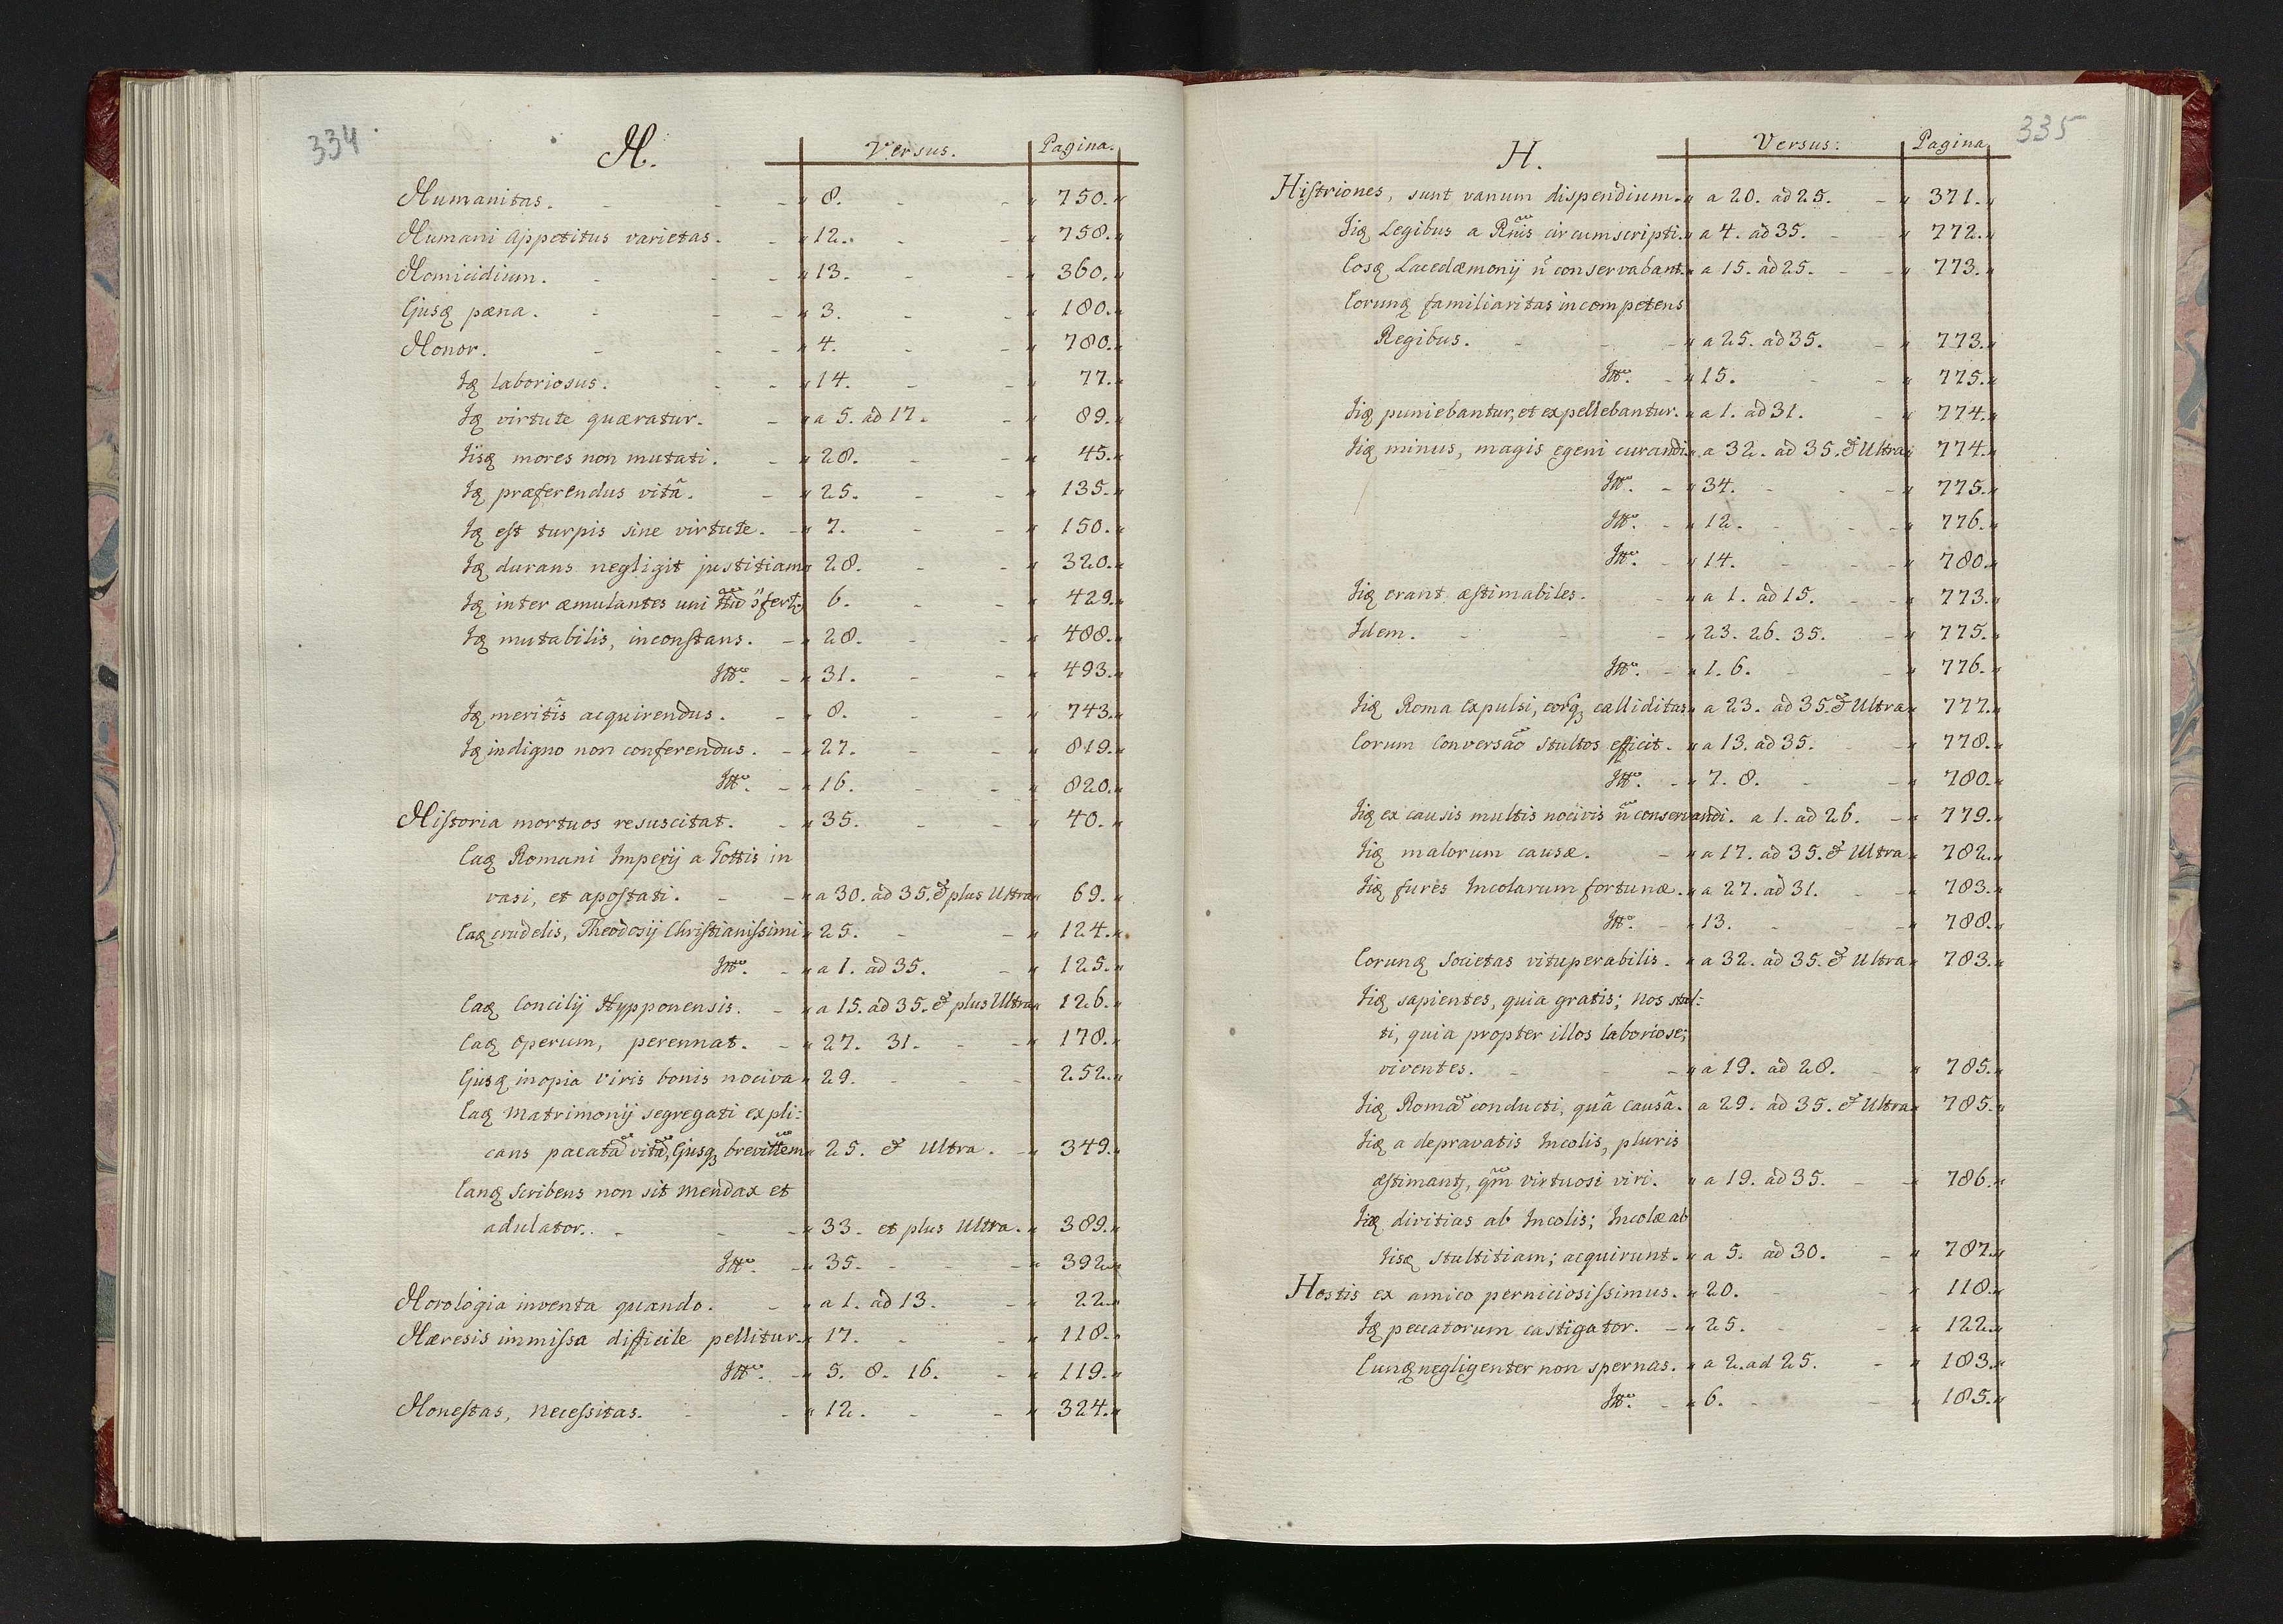 334
H. Versus. Pagina.
Humanitas. - - - " 8. - - " 750."
Humani Appetitus varietas. - " 12. - " 758."
Homicidium. - - - " 13. - - " 360."
Ejusq pæna. - - - " 3. - - " 180."
Honor. - - - " 4. - - " 780."
Iq laboriosus. - - " 14. - - " 77."
Iq virtute quæratur. - " a 5. ad 17. - " 89."
Iisq mores non mutati. - " 28. - - " 45."
Iq præferendus vitâ. - " 25. - - " 135."
Iq est turpis sine virtute. - " 7. - - " 150."
Iq durans negligit justitiam " 28. - - " 320."
Iq inter æmulantes uni 6. - - " 429."
Iq mutabilis, inconstans. - " 28. - - " 488."
Itt. - " 31. - - " 493."
Iq meritis acquirendus. - " 8. - - " 743."
Iq indigno non conferendus. - " 27. - - " 819."
Itt. - " 16. - - " 820."
Historia mortuos resuscitat. - " 35. - - " 40."
Eaq Romani Imperij a Gottis in
vasi, et apostati. - - " a 30. ad 35. & plus Ultra " 69."
Eaq crudelis, Theodosij Christianissimi " 25. - - " 124."
Itt. - " a 1. ad 35. - " 125."
Eaq Concilij Hypponensis. - " a 15. ad 35. & plus Ultra " 126."
Eaq Operum, perennat. - " 27. 31. - - " 178."
Ejusq inopia viris bonis nociva " 29. - - - 252."
Eaq Matrimonij segregati expli:
cans pacatã vitã, Ejusq brevittem " 25. & Ultra. - " 349."
Eanq scribens non sit mendax et
adulator. - - - " 33. et plus Ultra. " 389."
Itt. - " 35. - - - " 392."
Horologia inventa quando. - " a 1. ad 13. - " 22."
Hæresis immissa difficile pellitur. " 17. - - " 118."
Itt. - " 5. 8. 16. - " 119."
Honestas, necessitas. - - " 12. - - " 324."
335
H. Versus: Pagina
Histriones, sunt vanum dispendium. " a 20. ad 25. - " 371."
Iiq Legibus a Rñis circumscripti. " a 4. ad 35. - " 772."
Eosq Lacedæmonij ñ conservabant. " a 15. ad 25. - " 773."
Eorunq familiaritas incompetens
Regibus. - - - " a 25. ad 35. - " 773."
Itt. - " 15. - - " 775."
Iiq puniebantur, et expellebantur. " a 1. ad 31. - " 774."
Iiq minus, magis egeni curandi. " a 32. ad 35. & Ultra " 774."
Itt. - " 34. - - " 775."
Itt. - " 12. - - " 776."
Itt. - " 14. - - " 780."
Iiq erant æstimabiles. - " a 1. ad 15. - " 773."
Idem. - - - " 23. 26. 35. - " 775."
Itt. - " 1. 6. - - " 776."
Iiq Roma Expulsi, eorq calliditas " a 23. ad 35. & Ultra " 777."
Eorum Conversão stultos efficit. " a 13. ad 35. - " 778."
Itt. - " 7. 8. - - " 780."
Iiq ex causis multis nocivis ñ conservandi. a 1. ad 26. - " 779."
Iiq malorum causæ. - " a 17. ad 35. & Ultra " 782."
Iiq fures Incolarum fortunæ. " a 27. ad 31. - " 783."
Itt. - " 13. - - " 788."
Eorunq Societas vituperabilis. " a 32. ad 35. & Ultra " 783."
Iiq sapientes, quia gratis; nos stul:
ti, quia propter illos laboriose;
viventes. - - - " a 19. ad 28. - " 785."
Iiq Romã conducti, quâ causâ. a 29. ad 35. & Ultra " 785."
Iiq a depravatis Incolis, pluris
æstimantq, qm̃ virtuosi viri. " a 19. ad 35. - " 786."
Iiq divitias ab Incolis; Incolæ ab
Iisq stultitiam; acquirunt. " a 5. ad 30. - " 787."
Hostis ex amico perniciosissimus. " 20. - - " 118."
Iq peccatorum castigator. - " 25. - - " 122."
Eunq negligenter non spernas. " a 2. ad 25. - " 183."
Itt. - " 6. - - " 185."